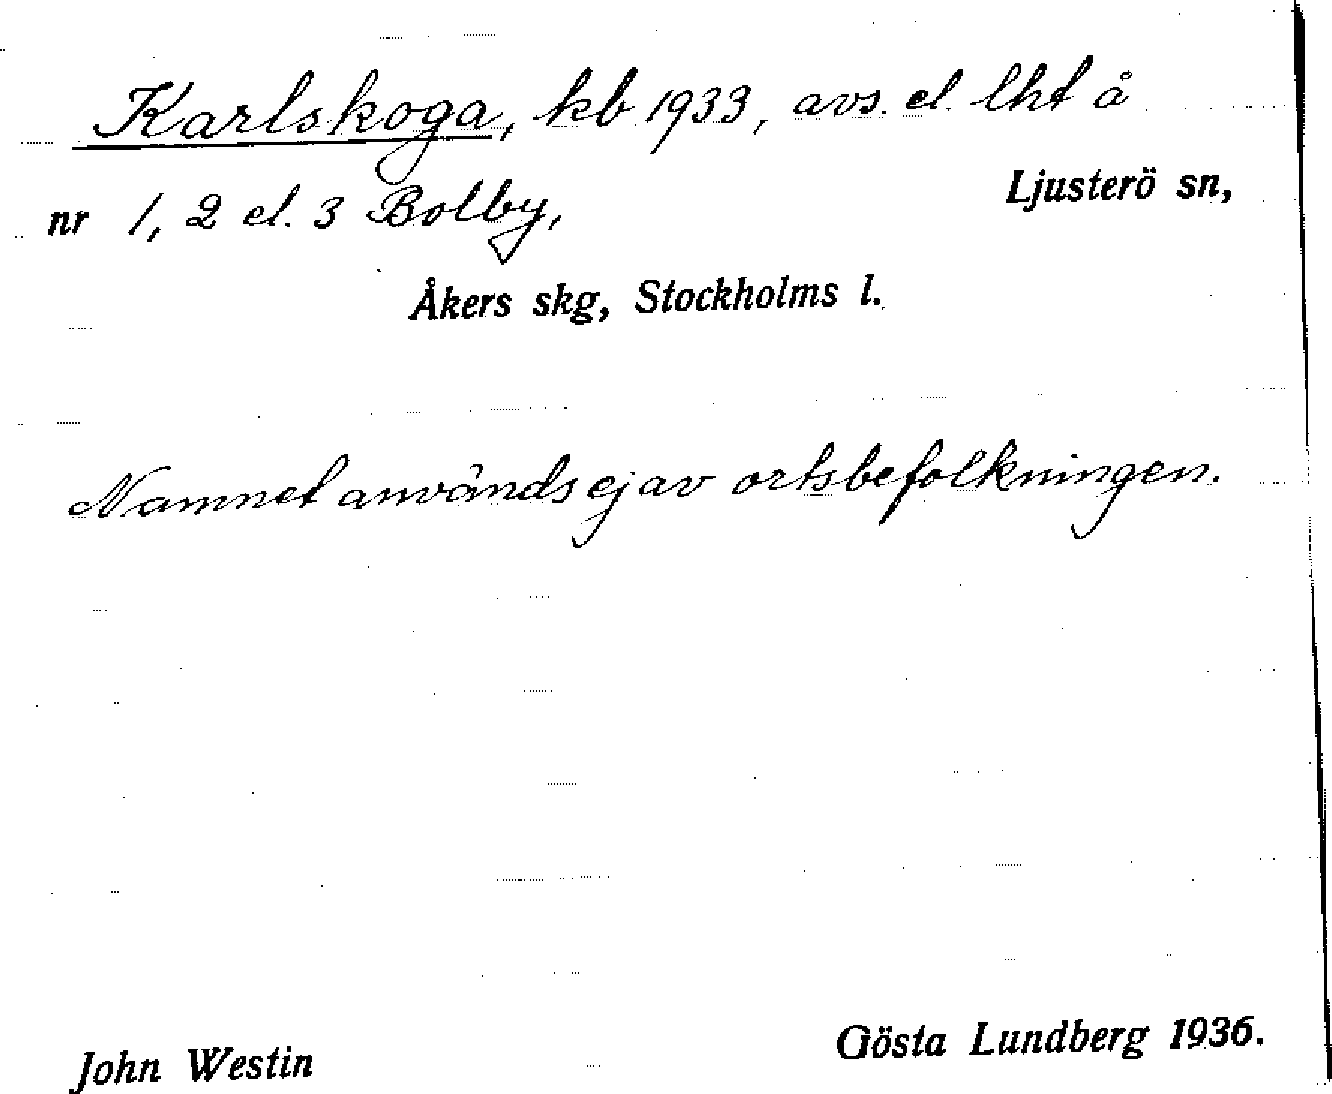 Karlskoga, kb 1933, avs. el. lht å
nr 1, 2 el. 3 Bolby, Ljusterö sn,
Åkers skg, Stockholms l.
Namnet användes ej av ortsbefolkningen.
John Westin Gösta Lundberg 1936.